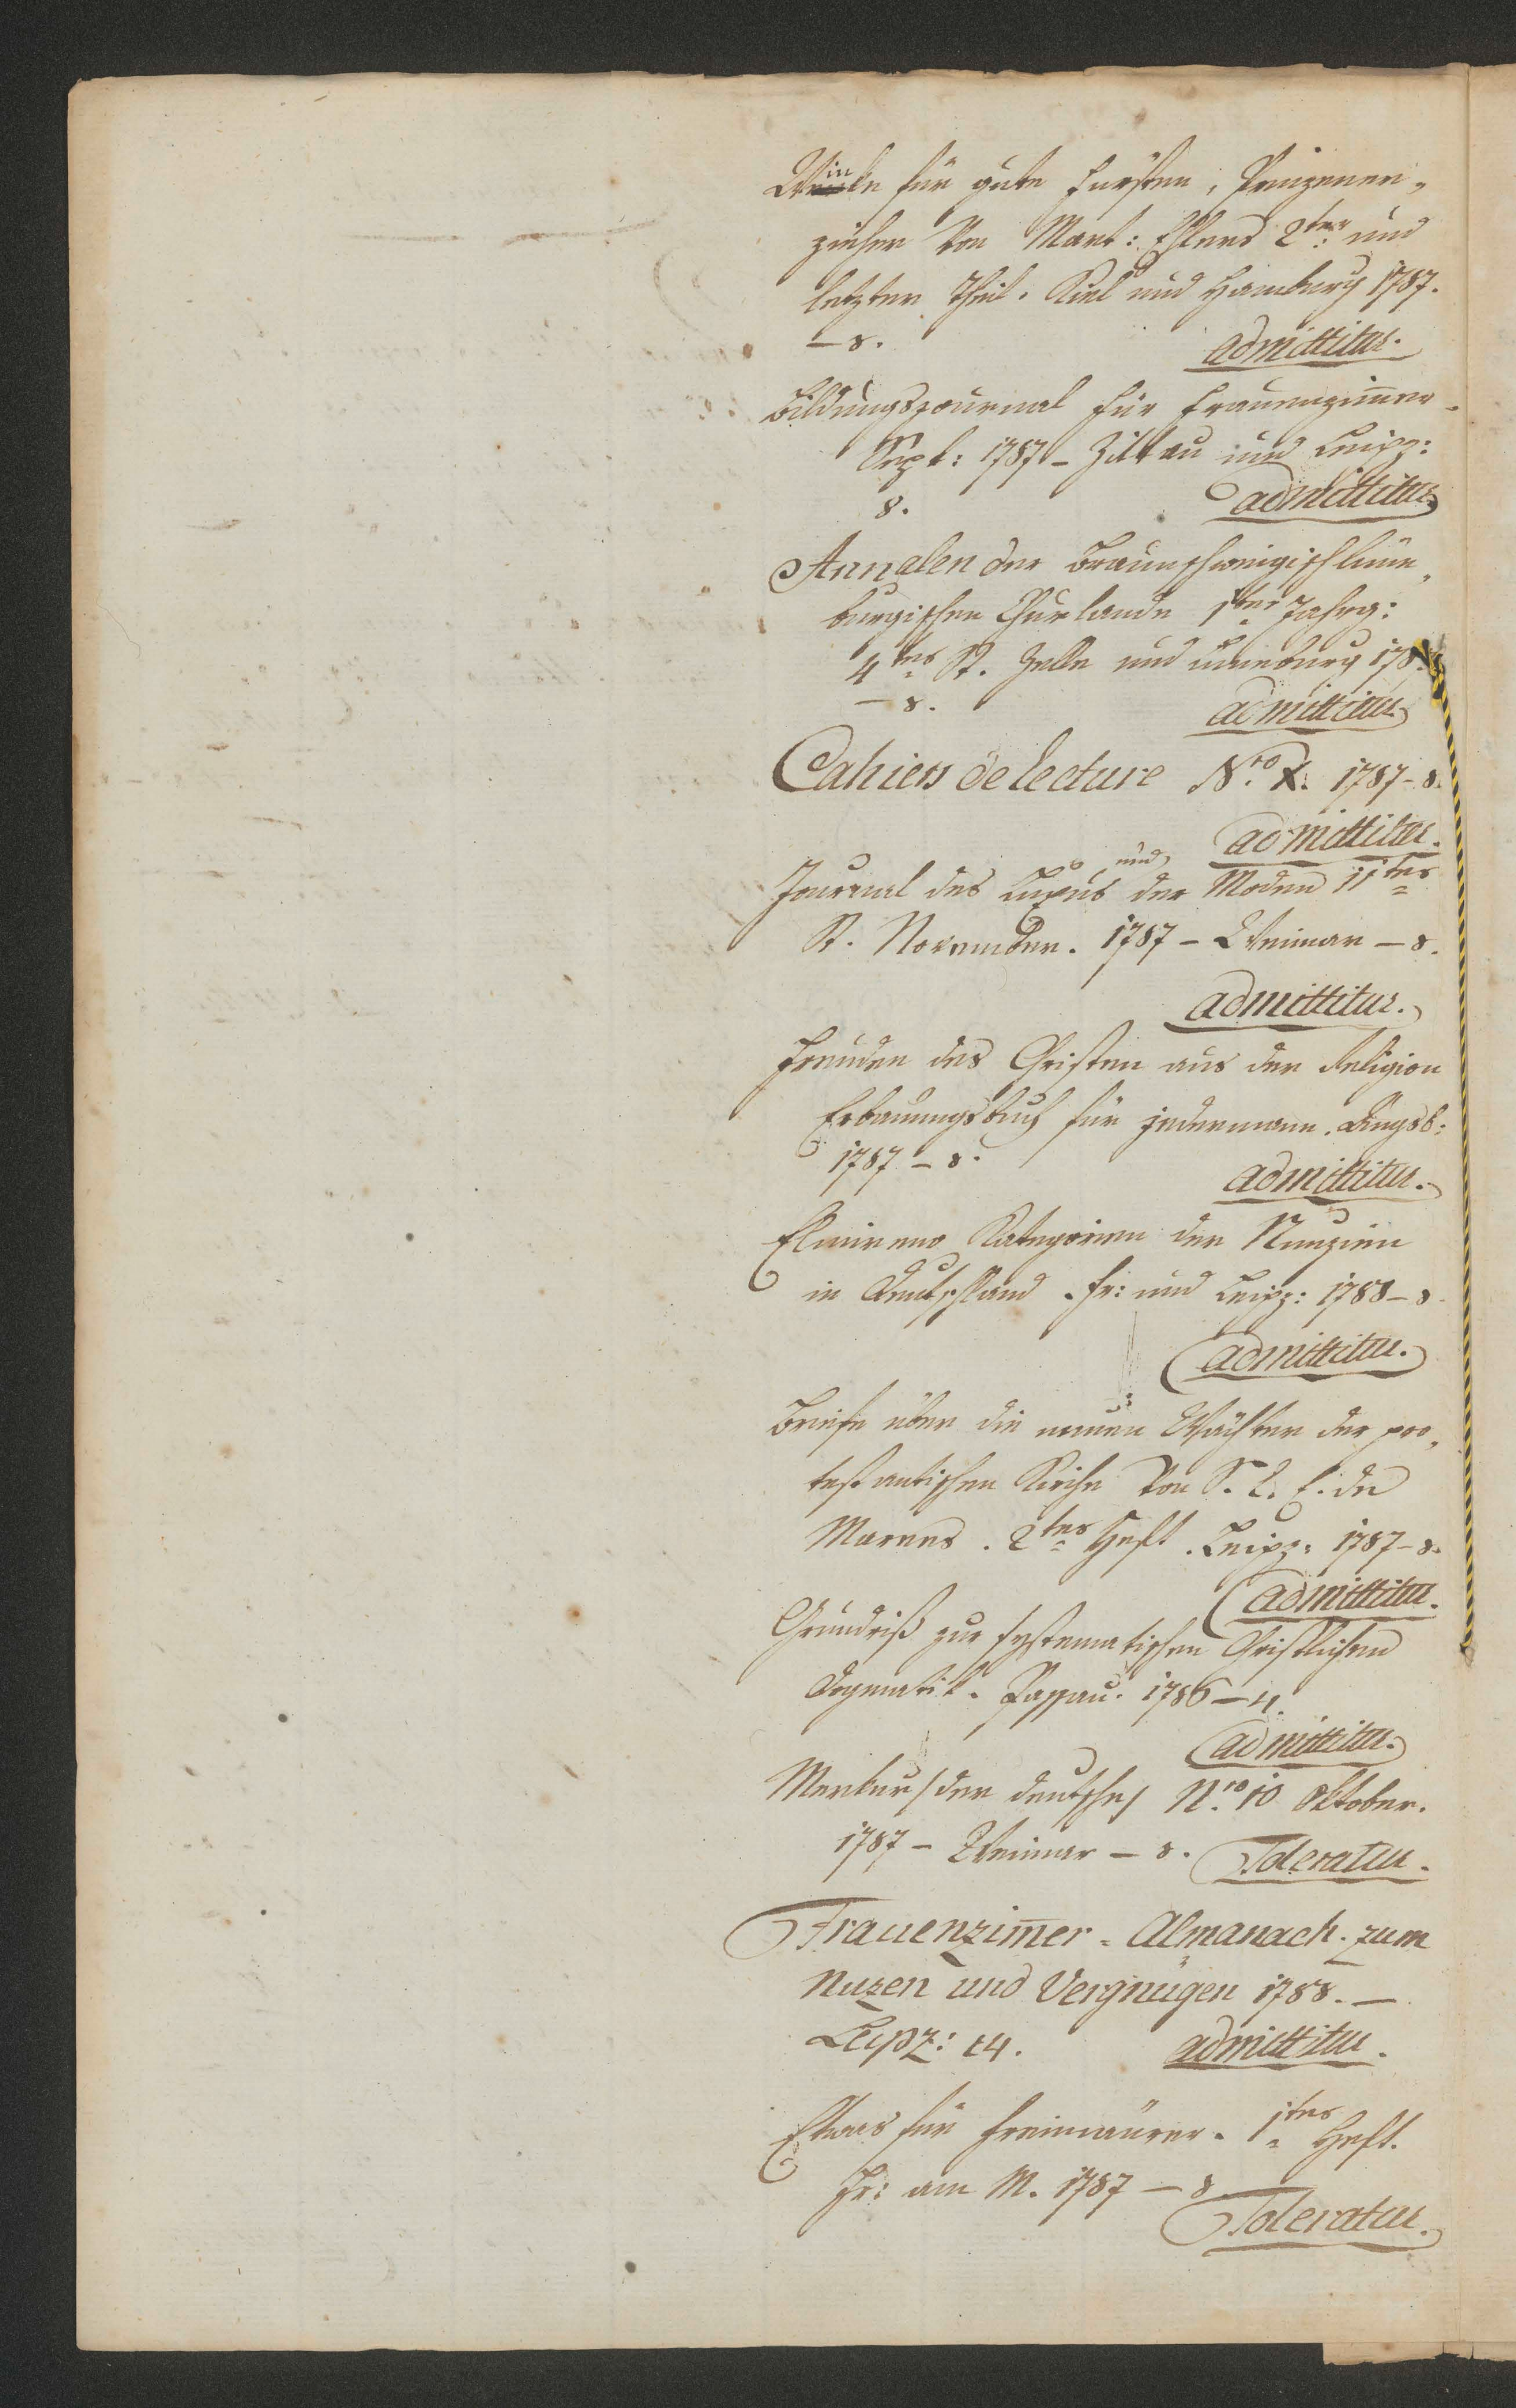 Winke für gute Fürsten, Prinzener,
zieher von Mart: Ehlers 2ter und
letzter Theil. Kiel und Hamburg 1787.
– 8. admittitur.
Bildungsjournal für Frauenzim̄er
Sept: 1787 – Zittau und Leipz:
8. admittitur
Annalen der Braunschweigischlüne,
burgischen Churlande 1ter Jahrg:
4tes St. Zelle und Luneburg 178
– 8. admittitur
Cahiers de lecture Nro X. 1787 – 8.
admittitur.
Journal des Luxus und der Moden 11tes
St. November. 1787 – Weimar – 8.
admittitur.
Freuden des Christen aus der Religion
Erbauungsbuch für jedermann. Augsb:
1787 – 8. admittitur.
Kategorien der Nunzien
in Deutschland. Fr: und Leipz: 1788 – 8
admittitur.
Briefe über die neuen Wächter der pro,
testantischen Kirche von S. L. E. de
Marees. 2tes Heft. Leipz: 1787 – 8.
admittitur.
Grundriß zur systematischen Christlichen
Dogmatik. Passau. 1786 – 4.
admittitur.
Merkur /der deutsche/ Nro 10 Oktober.
1787 – Weimar – 8. Toleratur.
Frauenzim̄er = Almanach. zum
Nuzen und Vergnügen 1788. –
Leipz: 14. admittitur.
Etwas für Freimäurer. 1tes Heft.
Fr: am M. 1787 – 8
Toleratur.